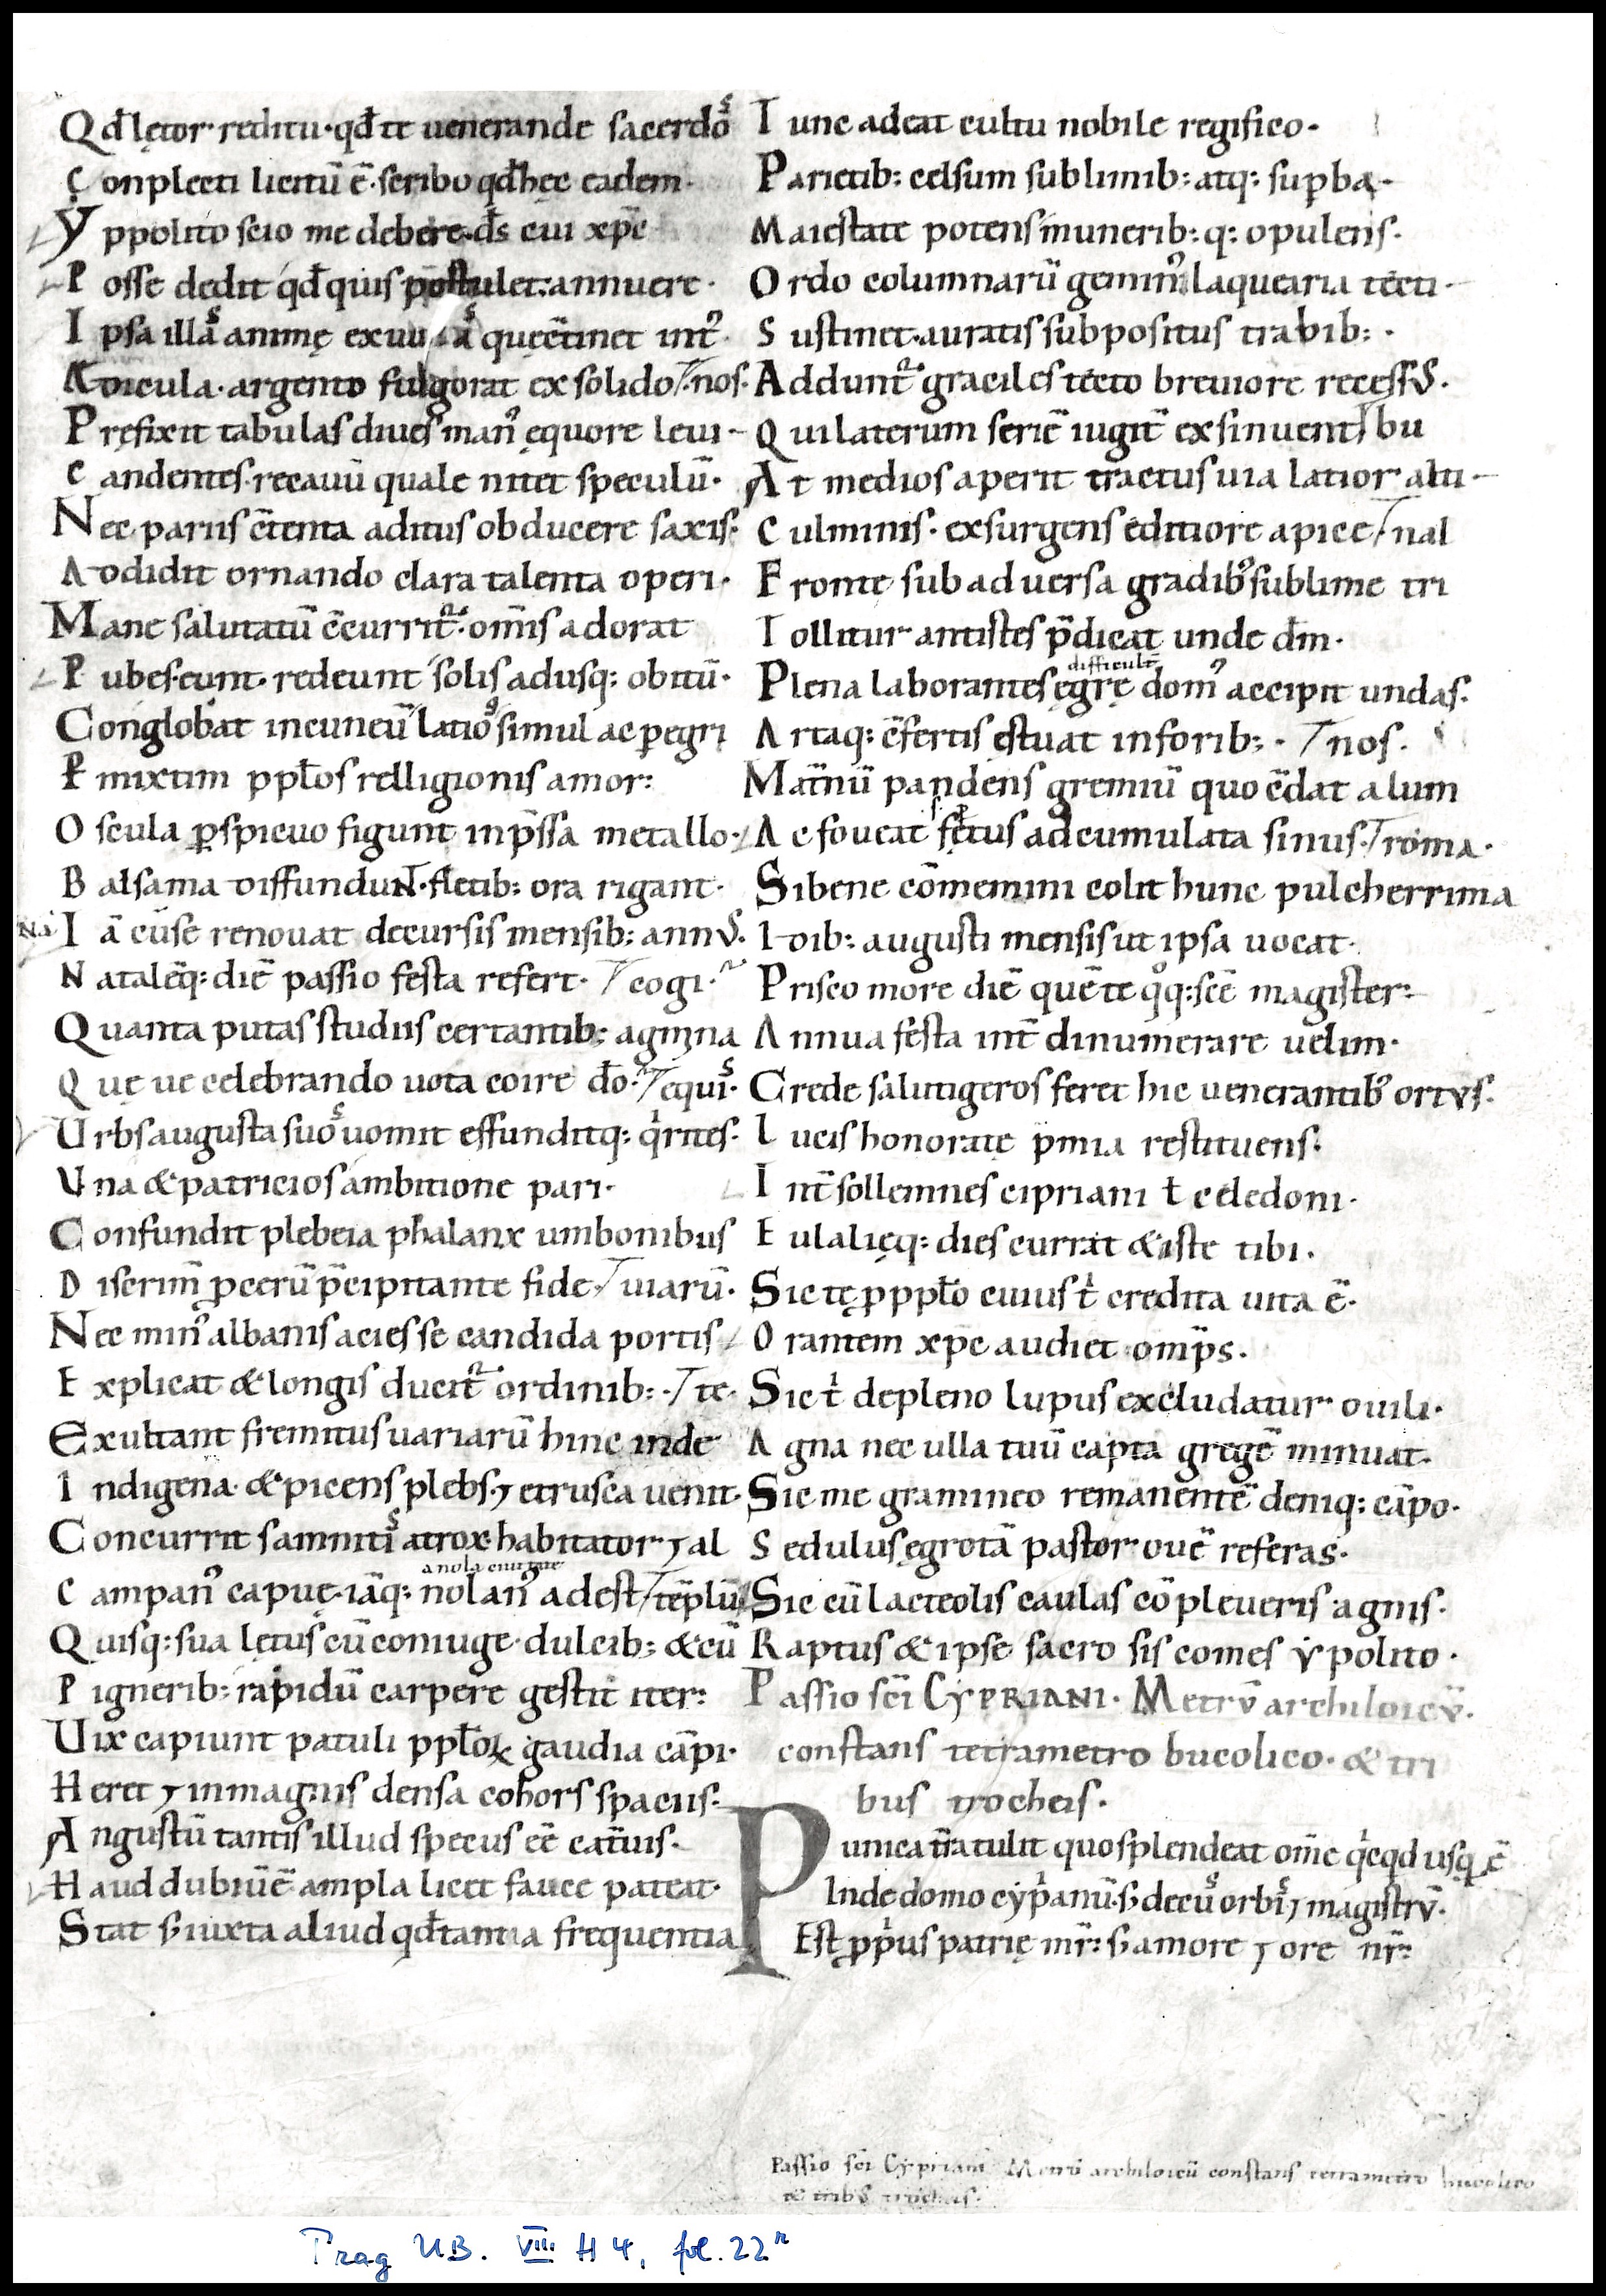 Qđ lętor reditu· qđ te uenerande sacerdoˢ
Conplecti licitū ē· scribo qđ hęc eadem·
Yppolito scio me debere· d̄s cui xp̄c
Posse dedit qđ quis postulet· annuere·
Ipsa illaˢ animę exuuiaˢ quę c̄tinet int᷒·
Aedicula· argento fulgorat ex solido / nos·
Pręfixit tabulas diues man᷒ ęquore leui·
Candentes· recauū quale nitet speculū·
Nec pariis c̄tenta aditus obducere saxis·
Addidit ornando clara talenta operi·
Mane salutatū c̄currit᷑· om̄is adorat
Pubes· eunt· redeunt solis adusq: obitū·
Conglobat in cuneū latioˢ simul ac ꝑegri
Pmixtim ppl̄os relligionis amor:
Oscula ꝑspicuo figunt inp̄ssa metallo·
Balsama diffunduNT· fletib: ora rigant·
Iā cū se renouat decursis mensib: annus·
Natalēq: diē passio festa refert· / cogi·᷑
Quanta putas studiis certantib: agmina
Quę ue celebrando uota coire d̄o·᷑ / equiˢ·
Urbs augusta suoˢ uomit effunditq: qͥrites·
Una & patricios ambitione pari·
Confundit plebeia phalanx umbonibus
Discrim̄ pcerū p̄cipitante fide· / uiarū·
Nec min᷒ albanis acies se candida portis
Explicat & longis ducit᷑ ordinib:· / te·
Exultant fremitus uariarū hinc inde
Indigena· & picens plebs· ⁊ etrusca uenit·
Concurrit samnitiˢ atrox habitator ⁊ al
a nola ciuitate
Campan᷒ capuę· iāq: nolan᷒ adest / tēplū·
Quisq: sua lętus cū coniuge dulcib: & cū
Pignerib: rapidū carpere gestit iter:
Uix capiunt patuli ppl̄oꝝ gaudia cāpi·
Heret ⁊ in magnis densa cohors spaciis·
Angustū tantis illud specus eē cat̄uis·
Haud dubiū ē· ampla licet fauce pateat·
Stat s; iuxta aliud qđ tanta frequentia
Tunc adeat cultu nobile regifico·
Parietib: celsum sublimib: atq: suꝑba·
Maiestate potens munerib: q: opulens·
Ordo columnarū gemin᷒ laquearia tecti·
Sustinet· auratis subpositus trabib:·
Addunt᷑ graciles tecto breuiore recessus·
Qui laterum seriē iugit̄ exsinuent / bu
At medios aperit tractus uia latior alti·
Culminis· exsurgens editiore apice· / nal
Fronte sub aduersa gradib᷒ sublime tri
Tollitur antistes p̄dicat unde dm̄·
difficult̄
Plena laborantes ęgrę dom᷒ accipit undas·
Artaq: c̄fertis ęstuat in forib:· / nos·
Mat̄nū pandens gremiū quo c̄dat alum
Ac foueat fętus adcumulata sinus· / roma·
Si bene cōmemini colit hunc pulcherrima
Idib: augusti mensis ut ipsa uocat·
Prisco more diē quē te qͦq: scē magister·
Annua festa int̄ dinumerare uelim·
Crede salutigeros feret hic uenerantib᷒ ortus·
Lucis honoratę p̄mia restituens·
Int̄ sollemnes cipriani t̄ celedoni·
Eulalięq: dies currat & iste tibi·
Sic tę ꝓ ppl̄o cuius tͥ credita uita ē·
Orantem xp̄c audiet om̄ps·
Sic tͥ de pleno lupus excludatur ouili·
Agna nec ulla tuū capta gregē minuat·
Sic me gramineo remanentē deniq: cāpo·
Sedulus ęgrotā pastor ouē referas·
Sic cū lacteolis caulas cōpleueris agnis·
Raptus & ipse sacro sis comes ypolito·
Passio sc̄i CYPRIANI· Metrū archiloicū·
constans tetrametro bucolico· & tri
bus trocheis·
Punica t̄ra tulit quo splendeat om̄e qͥcqd usq̨ ē
Inde domo cyp̄anū· s; decuˢ orbiˢ ⁊ magistrū·
Est ꝓpͥus patrię mr̄: s; amore ⁊ ore nr̄:
Passio sc̄i Cypriani Metrū archiloicū constans tetrametro bucolico
& tribus trocheis·
Prag UB. VIII H 4, fol. 22ʳ